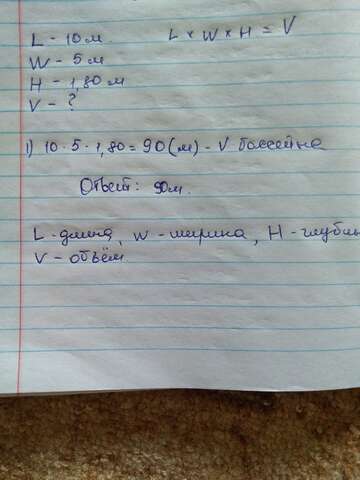 L - 10 м L × W × H = V
W - 5 м
H - 1,80 м
V - ?
1) 10 · 5 · 1,80 = 90 (м) - V бассейна
Ответ: 90м.
L - длина, W - ширина, H - глубин
V - объём